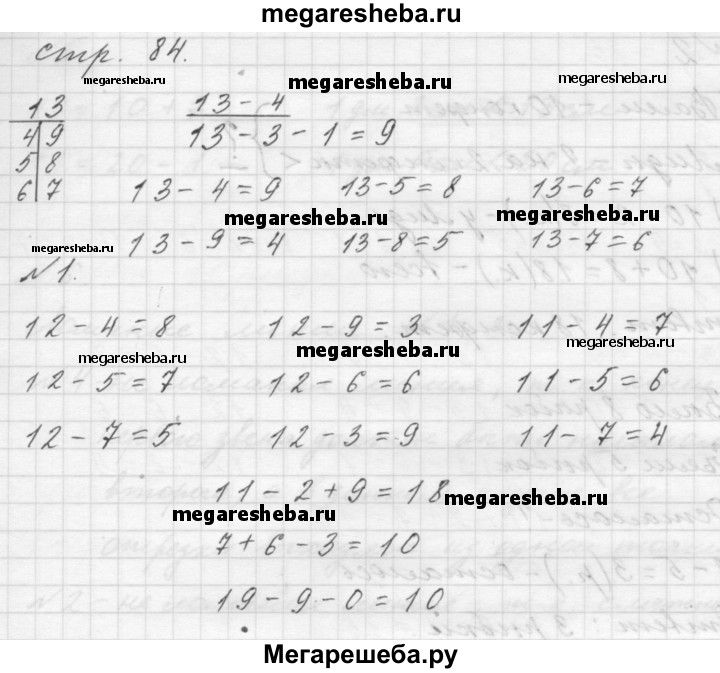 megaresheba.ru
стр. 84.
megaresheba.ru megaresheba.ru megaresheba.ru
13 13 - 4
4 9 13 - 3 - 1 = 9
5 8
6 7 13 - 4 = 9 13 - 5 = 8 13 - 6 = 7
megaresheba.ru megaresheba.ru
megaresheba.ru 13 - 9 = 4 13 - 8 = 5 13 - 7 = 6
№1.
12 - 4 = 8 12 - 9 = 3 11 - 4 = 7
megaresheba.ru megaresheba.ru megaresheba.ru
12 - 5 = 7 12 - 6 = 6 11 - 5 = 6
12 - 7 = 5 12 - 3 = 9 11 - 7 = 4
11 - 2 + 9 = 18 megaresheba.ru
megaresheba.ru
7 + 6 - 3 = 10
19 - 9 - 0 = 10
Мегарешеба.ру